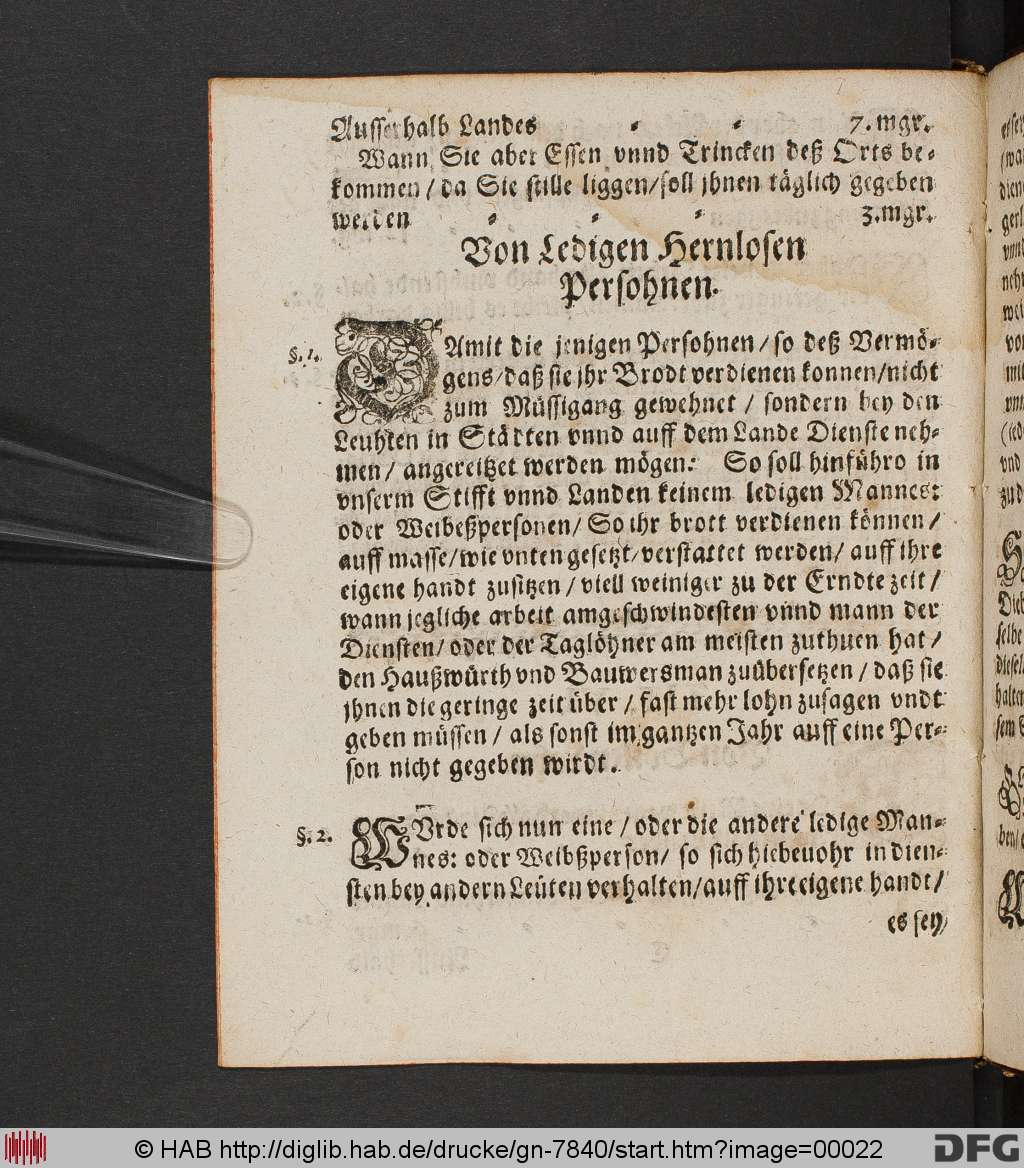 Ausserhalb Landes = = 7. mgr.
Wann Sie aber Essen vnnd Trincken deß Orts be=
kommen / da Sie stille liggen / soll jhnen täglich gegeben
werden = = = 3. mgr.
Von Ledigen Hernlosen
Persohnen.
§. 1. DAmit die jenigen Persohnen / so deß Vermö=
gens / daß sie jhr Brodt verdienen konnen / nicht
zum Müssigang gewehnet / sondern bey den
Leuhten in Städten vnnd auff dem Lande Dienste neh=
men / angereitzet werden mögen: So soll hinführo in
vnserm Stifft vnnd Landen keinem ledigen Mannes:
oder Weibeßpersonen / So ihr brott verdienen können /
auff masse / wie vnten gesetzt / verstattet werden / auff ihre
eigene handt zusitzen / viell weiniger zu der Erndte zeit /
wann jegliche arbeit amgeschwindesten vnnd mann der
Diensten / oder der Taglöhner am meisten zuthuen hat /
den Haußwürth vnd Bauwersman zuübersetzen / daß sie
jhnen die geringe zeit über / fast mehr lohn zusagen vndt
geben müssen / als sonst im gantzen Jahr auff eine Per=
son nicht gegeben wirdt.
§. 2. WUrde sich nun eine / oder die andere ledige Man=
nes: oder Weibßperson / so sich hiebeuohr in dien=
sten bey andern Leüten verhalten / auff ihre eigene handt /
es sey
© HAB http://diglib.hab.de/drucke/gn-7840/start.htm?image=00022
DFG